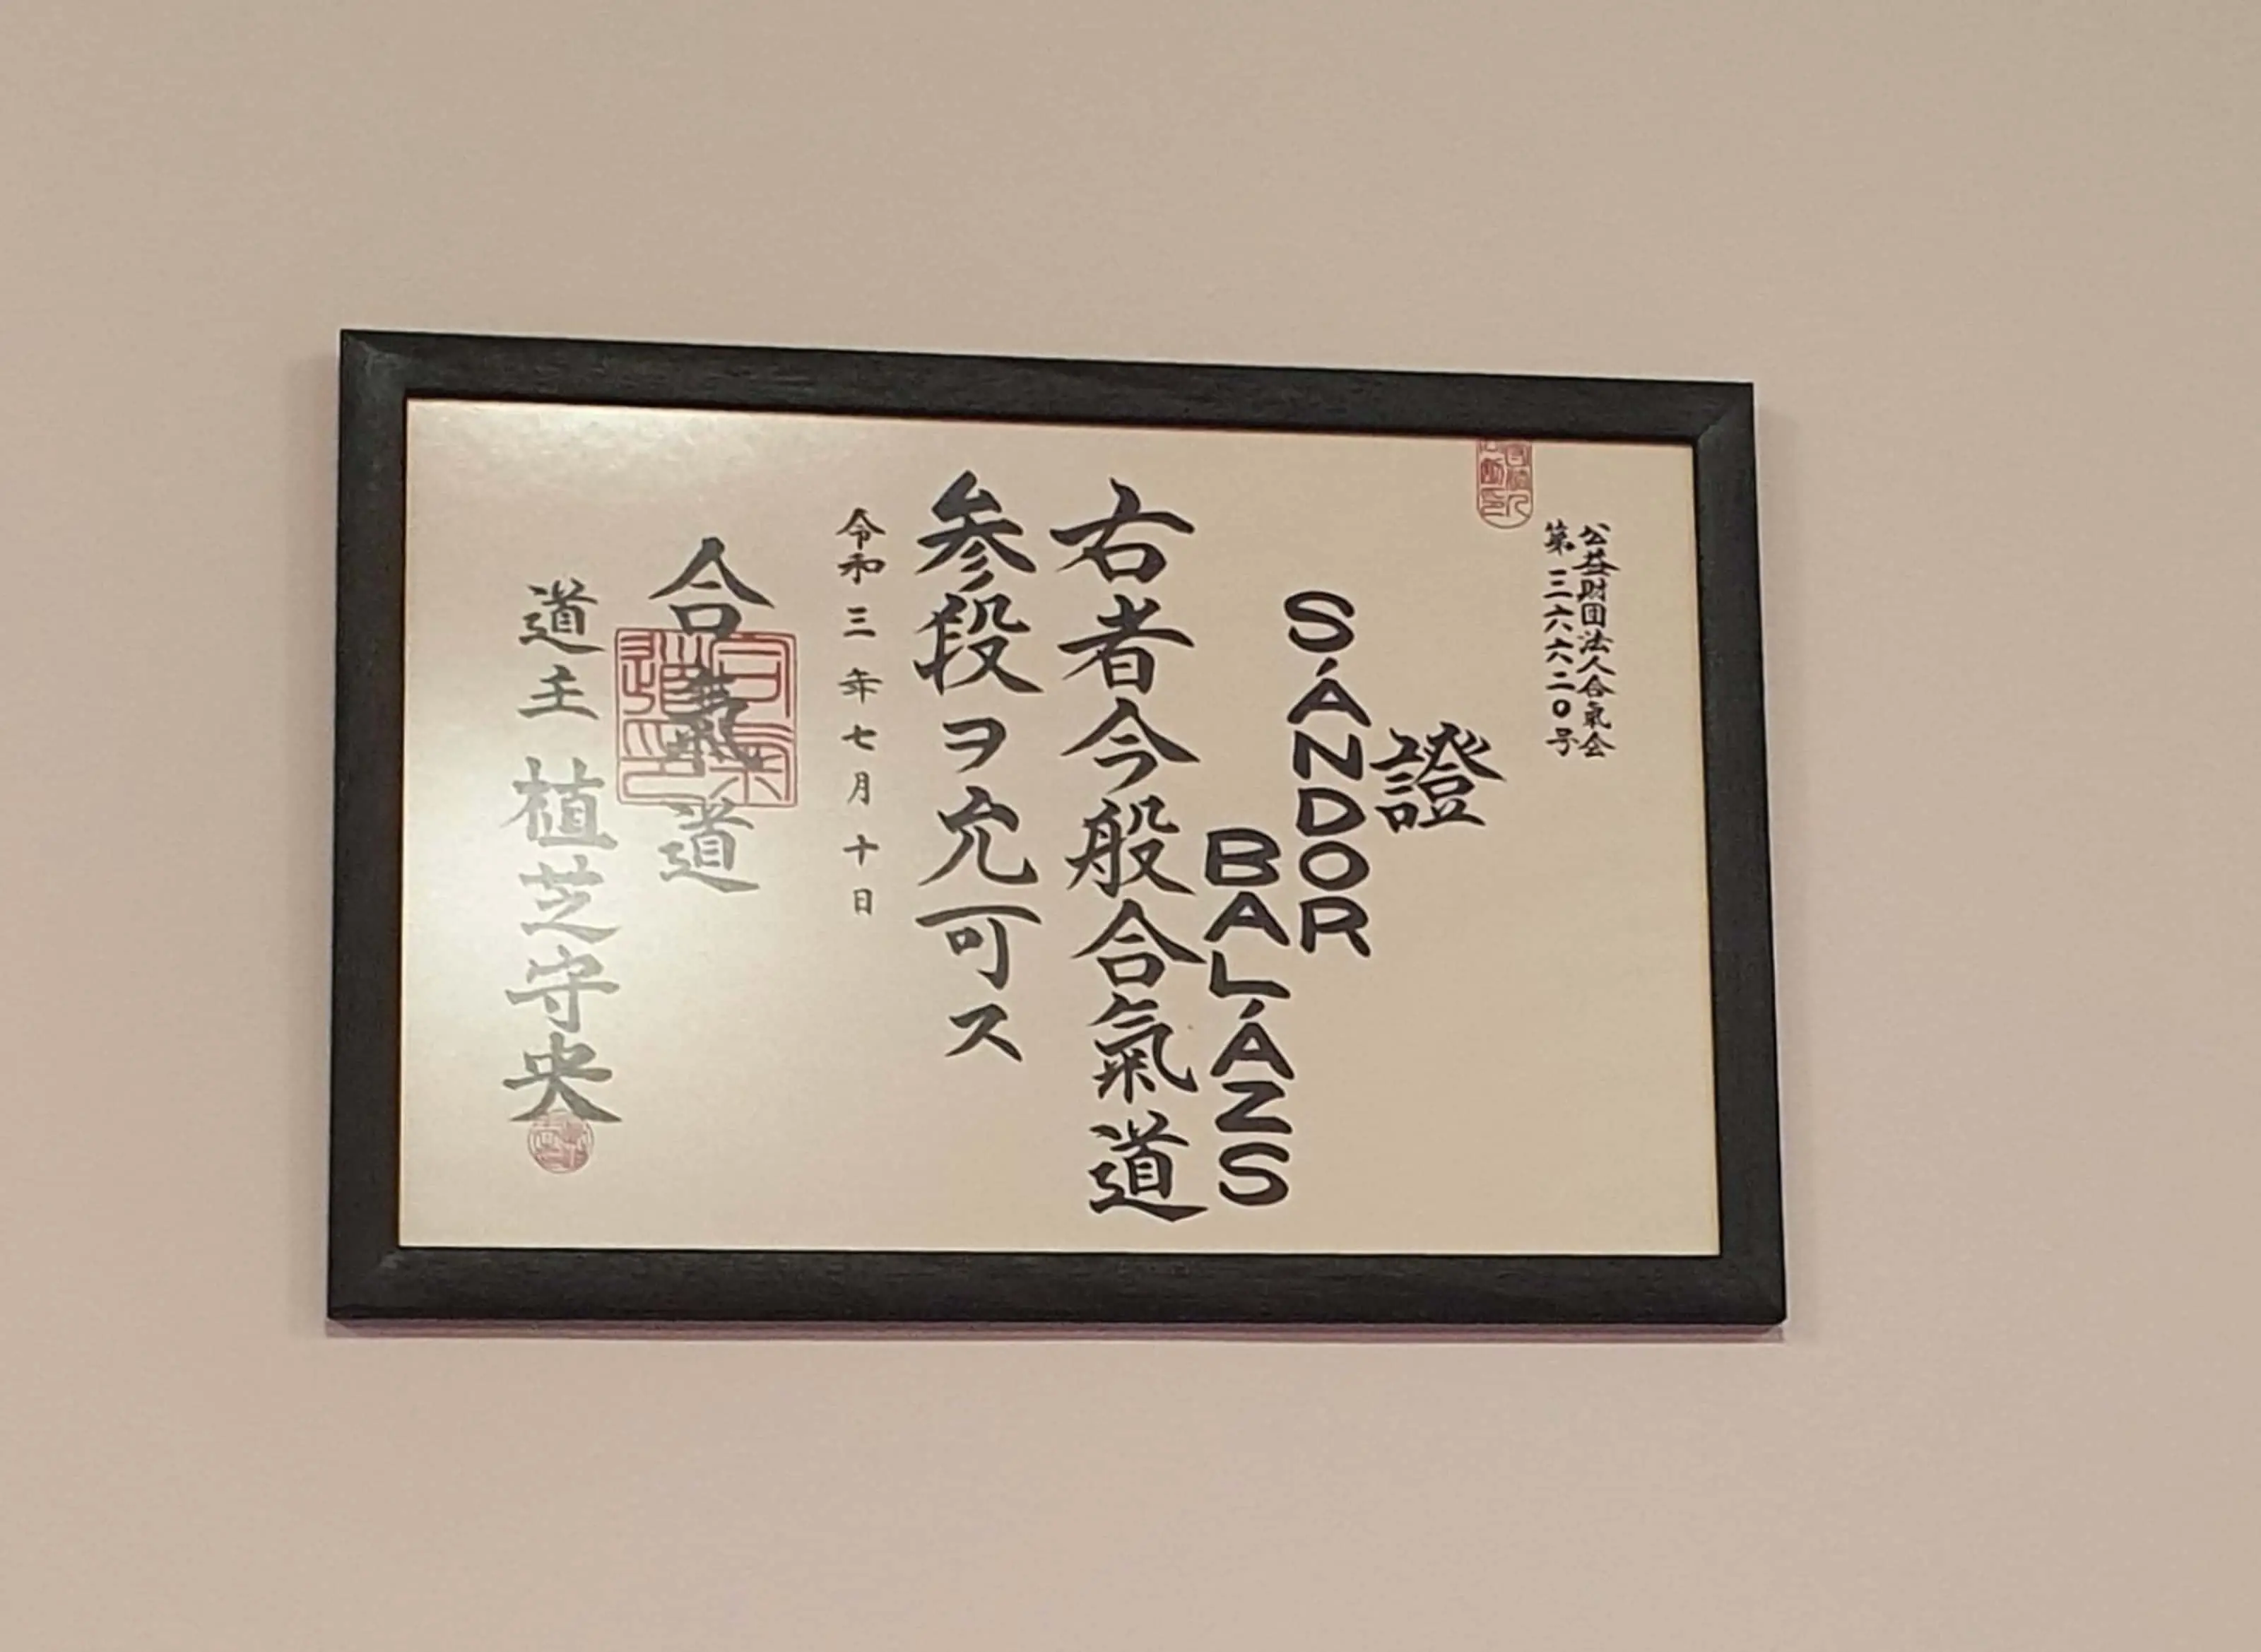 公益財団法人合氣会
第三六六二〇号
證
SÁNDOR
BALÁZS
右者今般合氣道
参段ヲ允可ス
令和三年七月十日
合氣道
道主 植芝守央